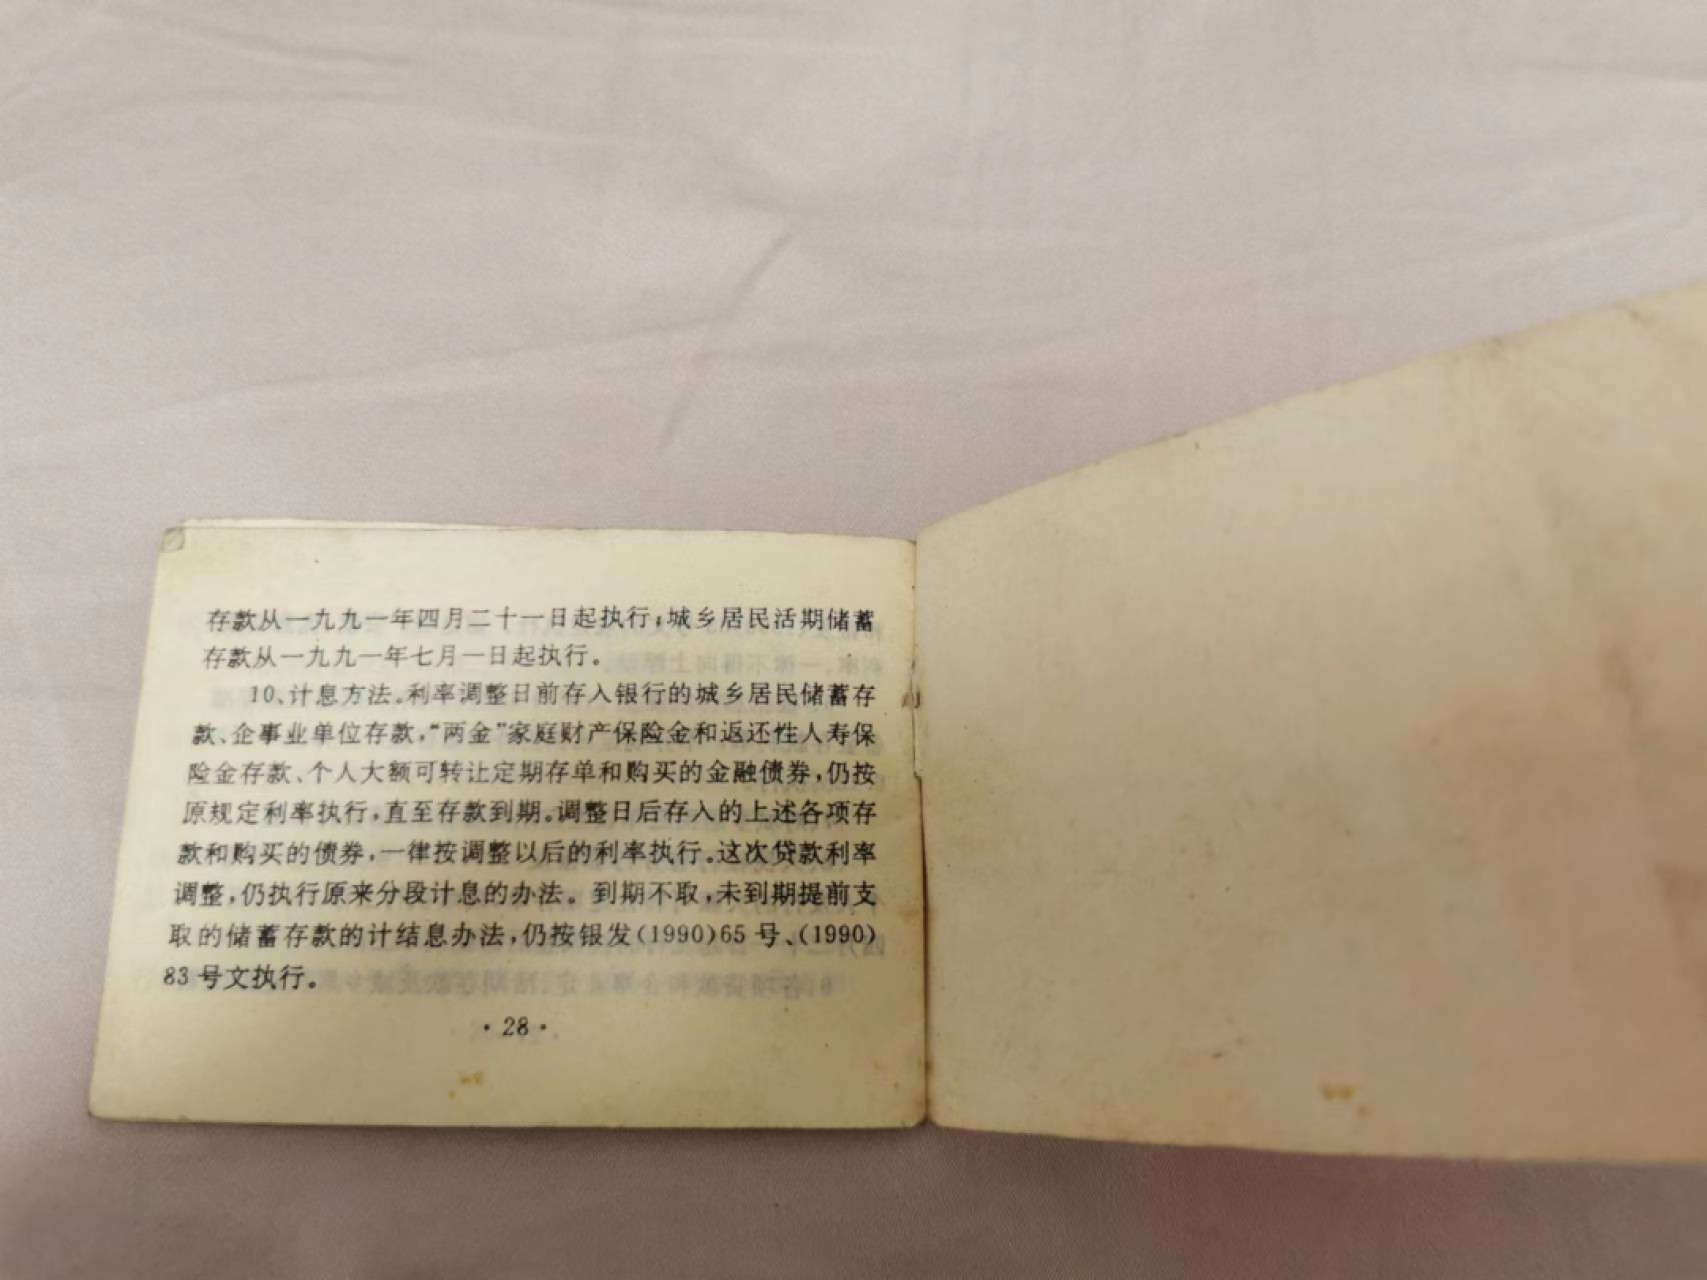 存款从一九九一年四月二十一日起执行;城乡居民活期储蓄
存款从一九九一年七月一日起执行。
10、计息方法。利率调整日前存入银行的城乡居民储蓄存
款、企事业单位存款,“两金”家庭财产保险金和返还性人寿保
险金存款、个人大额可转让定期存单和购买的金融债券,仍按
原规定利率执行,直至存款到期。调整日后存入的上述各项存
款和购买的债券,一律按调整以后的利率执行。这次贷款利率
调整,仍执行原来分段计息的办法。到期不取,未到期提前支
取的储蓄存款的计结息办法,仍按银发(1990)65号、(1990)
83号文执行。
·28·